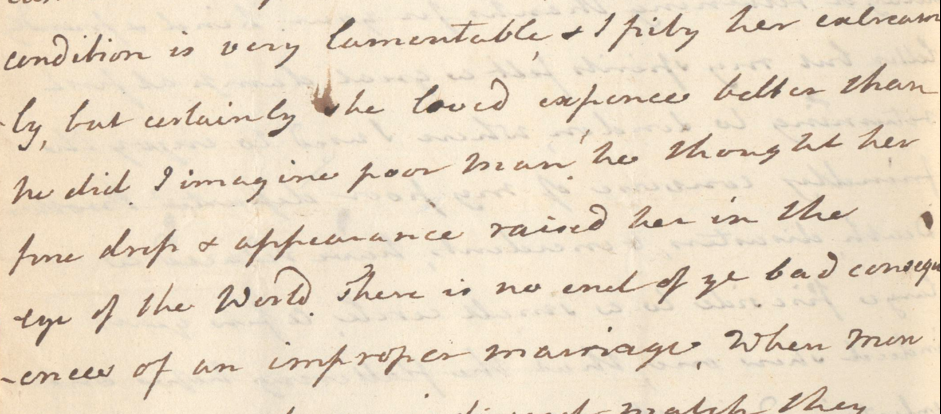 condition is very lamentable, & I pity her extream
-ly, but certainly she loved expence better than
he did. I imagine poor man, he thought her
fine dress & appearance raised her in the
eye of the World. There is no end of ye bad consequ
-ences of an improper marriage, when men
match they